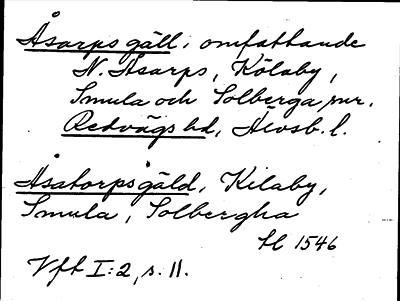 Åsarps gäll, omfattande
N. Åsarps, Kölaby,
Smula och Solberga, snr.
Redvägs hd, Älvsb. l.
Åsatorps gäld, Kilaby,
Smula, Solbergha
H 1546
Vft I:2, s. 11.